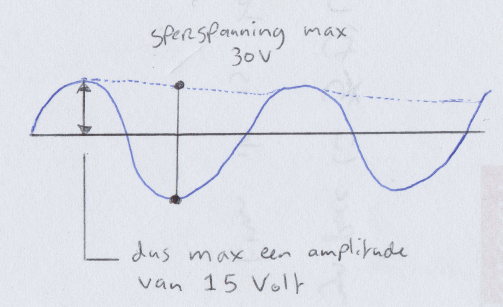 sperspanning max
30V
dus max een amplitude
van 15 Volt